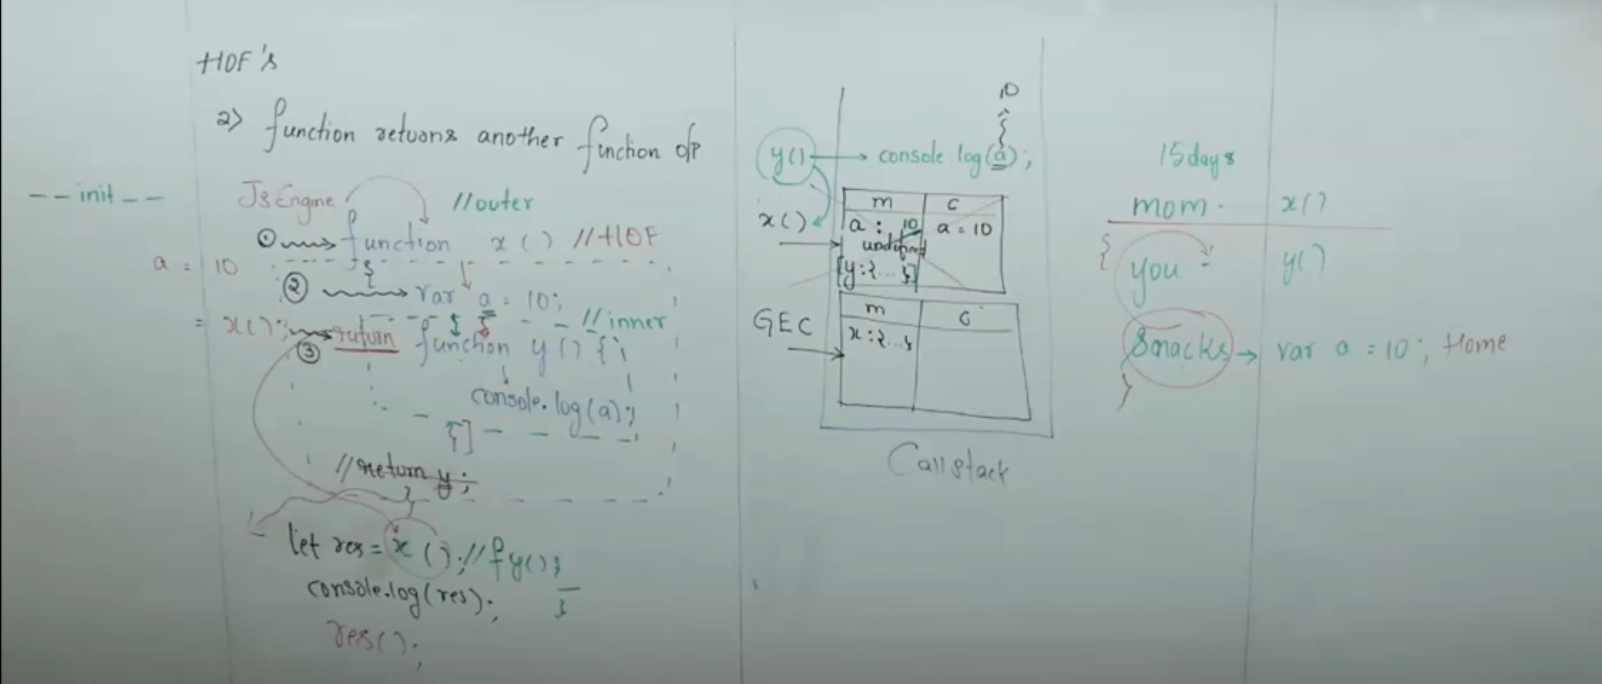 HOF's
2) function returns another function o/p
-- init --
JS Engine //outer
① function x () //HOF
a = 10 {
② var a = 10;
= x(); //inner
③ return function y () {
console.log(a);
}
//return y;
}
let res = x (); // f y() {
}
console.log(res);
res();
10
y() → console log(a);
x()
m c
a : 10 a = 10
undefined
y:{...}
GEC
m c
x:{...}
Call stack
15 days
mom. x()
{ you y()
Snacks → var a = 10; Home
}